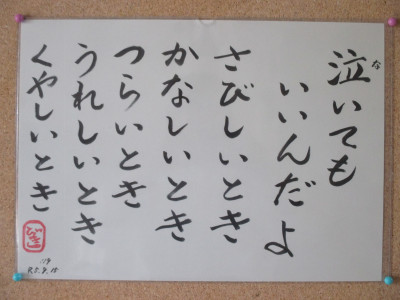 泣いても
な
いいんだよ
さびしいとき
かなしいとき
つらいとき
うれしいとき
くやしいとき